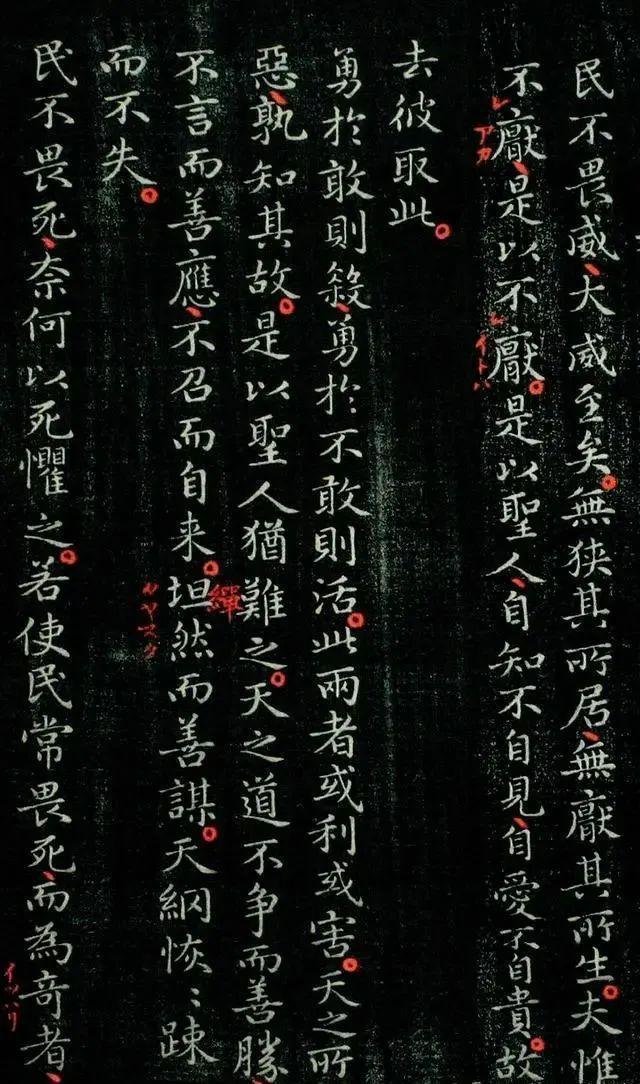 民不畏威、大威至矣。無狭其所居、無厭其所生。夫惟
不厭、是以不厭。是以聖人、自知不自見、自愛不自貴。故
去彼取此。
勇於敢則殺、勇於不敢則活。此兩者或利或害。天之所
惡、孰知其故。是以聖人猶難之。天之道不争而善勝、
不言而善應、不召而自来。坦然而善謀。天網恢〻踈
而不失。
民不畏死、奈何以死懼之。若使民常畏死、而為奇者、
レアカ
レイトハ
繟
イツハリ